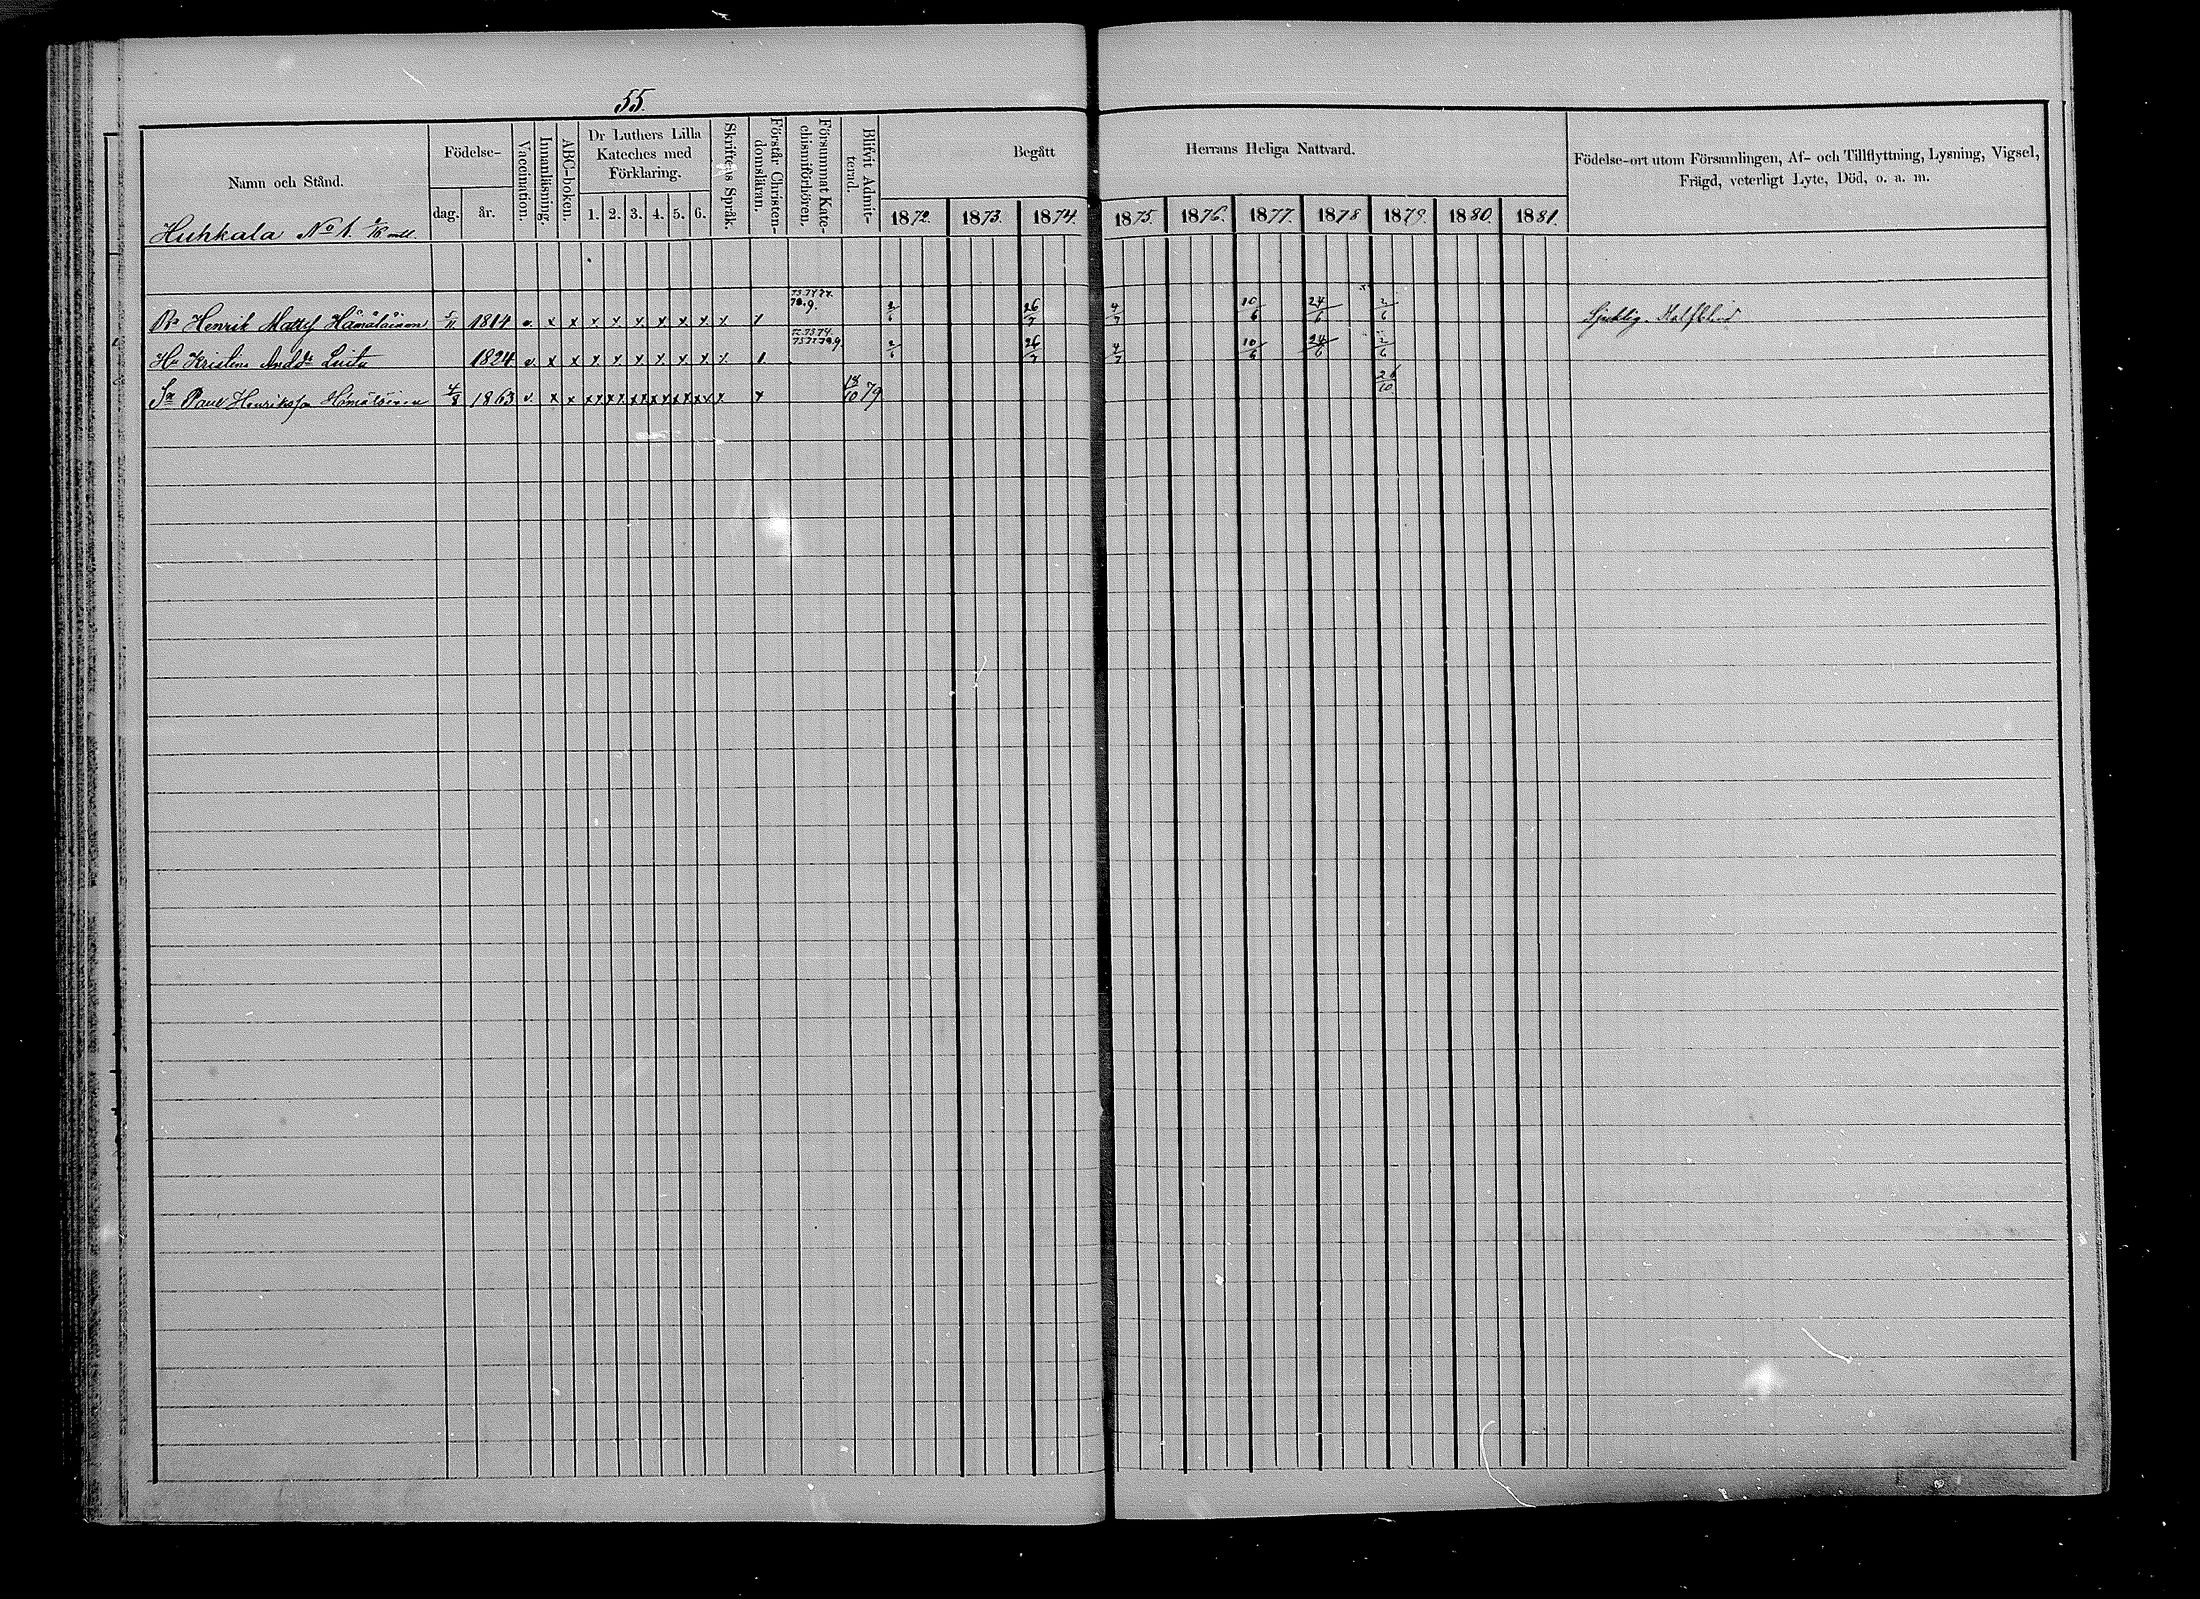 55.
Namn och Stånd.
Födelse-
dag. år.
Vaccination.
Innanläsning.
ABC-boken.
Dr Luthers Lilla
Kateches med
Förklaring.
1. 2. 3. 4. 5. 6.
Skriftens Språk.
Förstår Christen-
domsläran.
Försummat Kate-
chismiförhören.
Blifvit Admit-
terad.
Begått Herrans Heliga Nattvard.
1872. 1873. 1874. 1875. 1876. 1877. 1878 1879. 1880. 1881.
Födelse-ort utom Församlingen, Af- och Tillflyttning, Lysning, Vigsel,
Frägd, veterligt Lyte, Död, o. a. m.
Huhkala No 1.
Henrik Hämäläinen 1814 v. x x x x x x x x x 2/6 26/7 4/7 10/6 24/6 2/6 Sjuklig. Halfblind
Hu Kristina 1824 v. x x x x x x x x x 2/6 26/7 4/7 10/6 24/6 2/6
Sn Paul Henriksson Hämäläinen 4/8 1863 v. x x xx xx xx xx xx xx x x 18/10 79 26/10